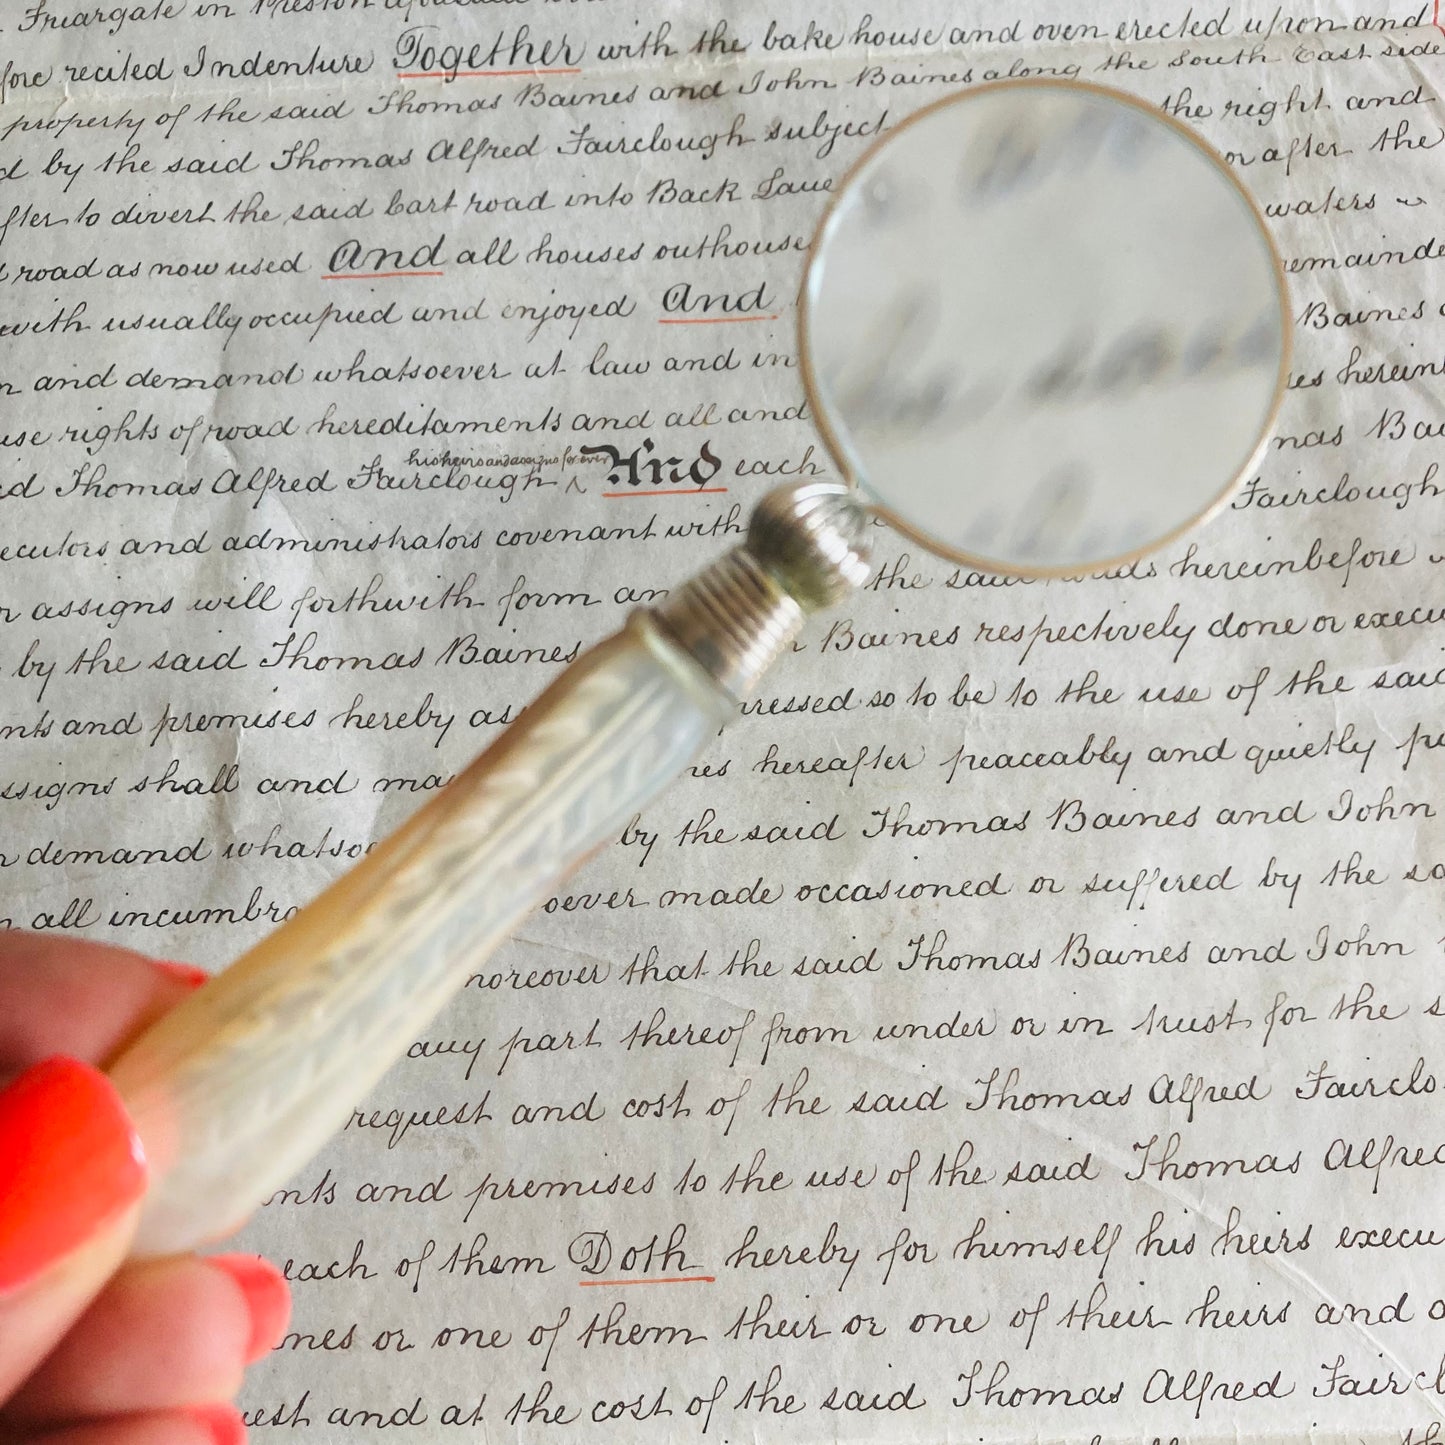 Friargate in Preston
fore recited Indenture Together with the bake house and oven erected upon and
property of the said Thomas Baines and John Baines along the South East side
d by the said Thomas Alfred Fairclough subject the right and
fter to divert the said Cart road into Back Lane or after the
road as now used And all houses outhouses waters
with usually occupied and enjoyed And remainde
n and demand whatsoever at law and in Baines
use rights of road hereditaments and all and es herein
his heirs and assigns for ever
id Thomas Alfred Fairclough ^ And each mas Bai
ecutors and administrators covenant with Fairclough
r assigns will forthwith form an the said roads hereinbefore
by the said Thomas Baines n Baines respectively done or execu
nts and premises hereby as pressed so to be to the use of the said
ssigns shall and ma nes hereafter peaceably and quietly
n demand whatsoe by the said Thomas Baines and John
n all incumbra soever made occasioned or suffered by the sa
moreover that the said Thomas Baines and John
any part thereof from under or in trust for the s
request and cost of the said Thomas Alfred Fairclo
nts and premises to the use of the said Thomas Alfred
each of them Doth hereby for himself his heirs execu
nes or one of them their or one of their heirs and a
uest and at the cost of the said Thomas Alfred Faircl